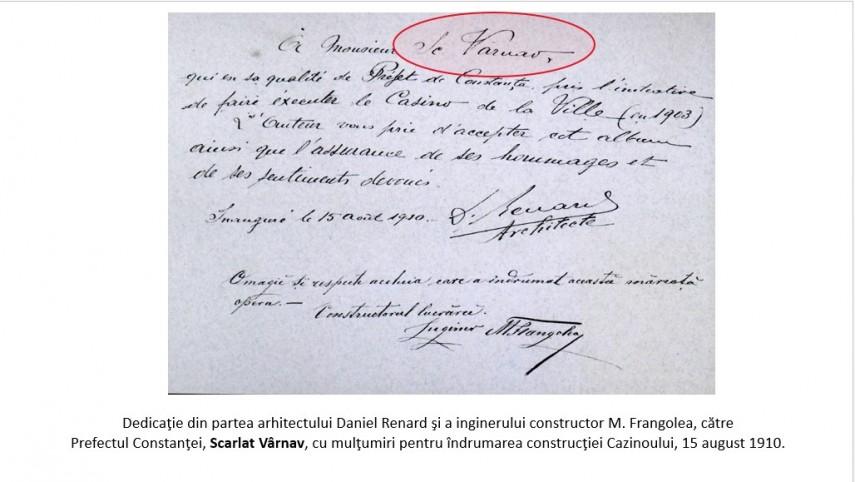 À Monsieur Sc Vârnav,
qui en sa qualité de Préfet de Constanţa pris l'initiative
de faire éxecuter le Casino de la Ville (en 1903)
L'Auteur vous prie d'accepter cet album
ainsi que l'assurance de ses hommages et
de ses sentiments devoués.
Inauguré le 15 août 1910. D. Renard
Architecte
Omagiu şi respect aceluia, care a îndrumat această măreaţă
opera.—
Constructorul lucrărei.
Inginer M Frangolea
Dedicaţie din partea arhitectului Daniel Renard şi a inginerului constructor M. Frangolea, către
Prefectul Constanţei, Scarlat Vârnav, cu mulţumiri pentru îndrumarea construcţiei Cazinoului, 15 august 1910.